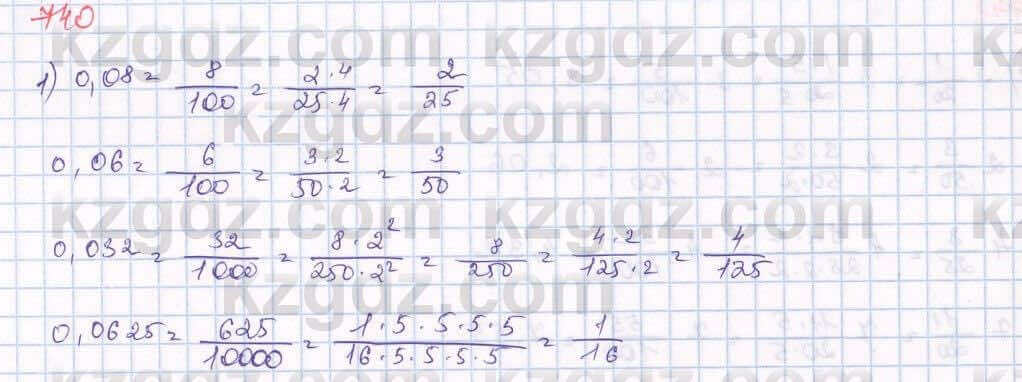 740
kzgdz.com
1) 0,08 = 8/100 = 2·4/25·4 = 2/25
kzgdz.com
0,06 = 6/100 = 3·2/50·2 = 3/50
kzgdz.com
0,032 = 32/1000 = 8·2²/250·2² = 8/250 = 4·2/125·2 = 4/125
kzgdz.com
0,0625 = 625/10000 = 1·5·5·5·5/16·5·5·5·5 = 1/16
kzgdz.com